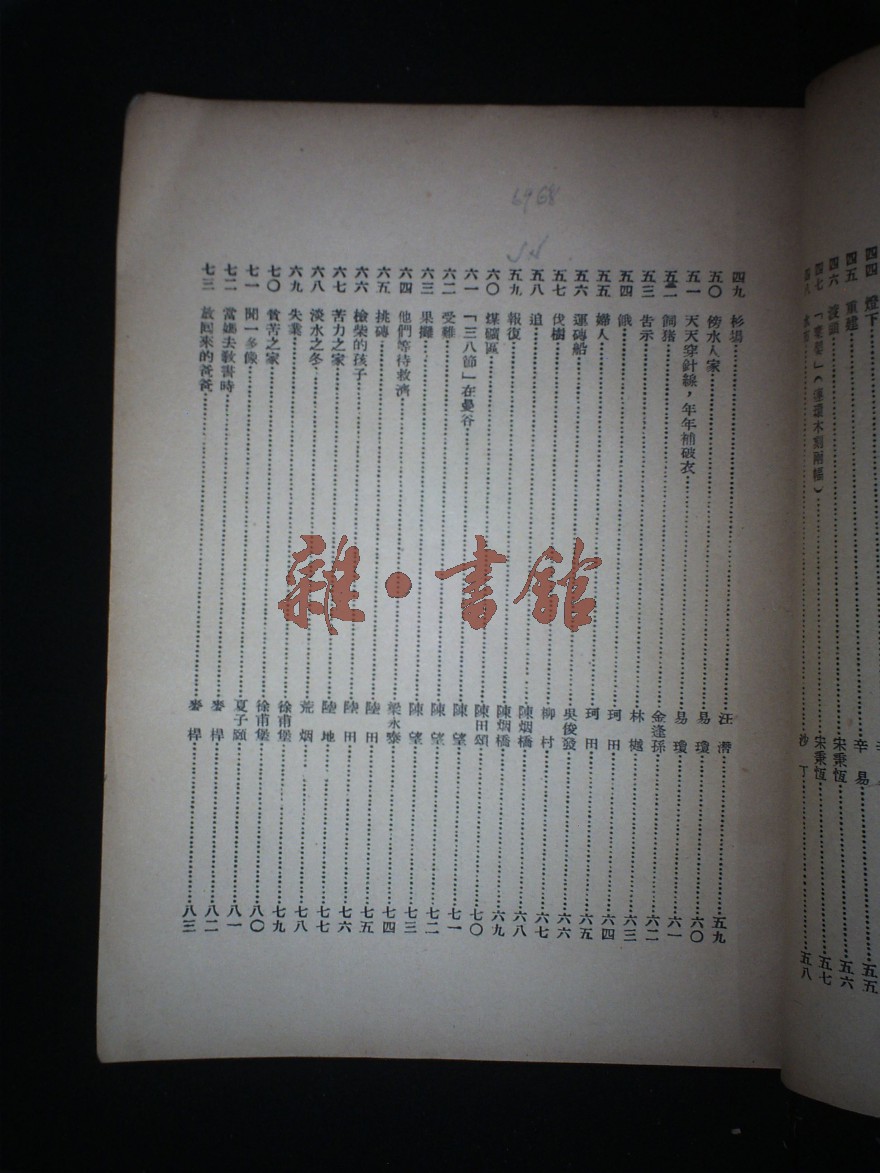 四四 燈下
四五 重建 辛 易 五五
四六 宋秉恆 五六
四七 (連環木刻兩幅) 宋秉恆 五七
四八 沙 丁 五八
四九 杉場 汪 潛 五九
五〇 傍水人家 易 瓊 六〇
五一 天天穿針線，年年補破衣 易 瓊 六一
五二 飼豬 金逢孫 六二
五三 告示 林 樾 六三
五四 餓 珂 田 六四
五五 婦人 珂 田 六五
五六 運磚船 吳俊發 六六
五七 伐樹 柳 村 六七
五八 追 陳烟橋 六八
五九 報復 陳烟橋 六九
六〇 煤礦區 陳田頌 七〇
六一 「三八節」在曼谷 陳 望 七一
六二 受難 陳 望 七二
六三 果攤 陳 望 七三
六四 他們等待救濟 梁永泰 七四
六五 挑磚 陸 田 七五
六六 檢柴的孩子 陸 田 七六
六七 苦力之家 陸 地 七七
六八 淡水之冬 荒 烟 七八
六九 失業 徐甫堡 七九
七〇 貧苦之家 徐甫堡 八〇
七一 聞一多像 夏子頤 八一
七二 當媽去敎書時 麥 桿 八二
七三 放回來的爸爸 麥 桿 八三
6968
雜·書館